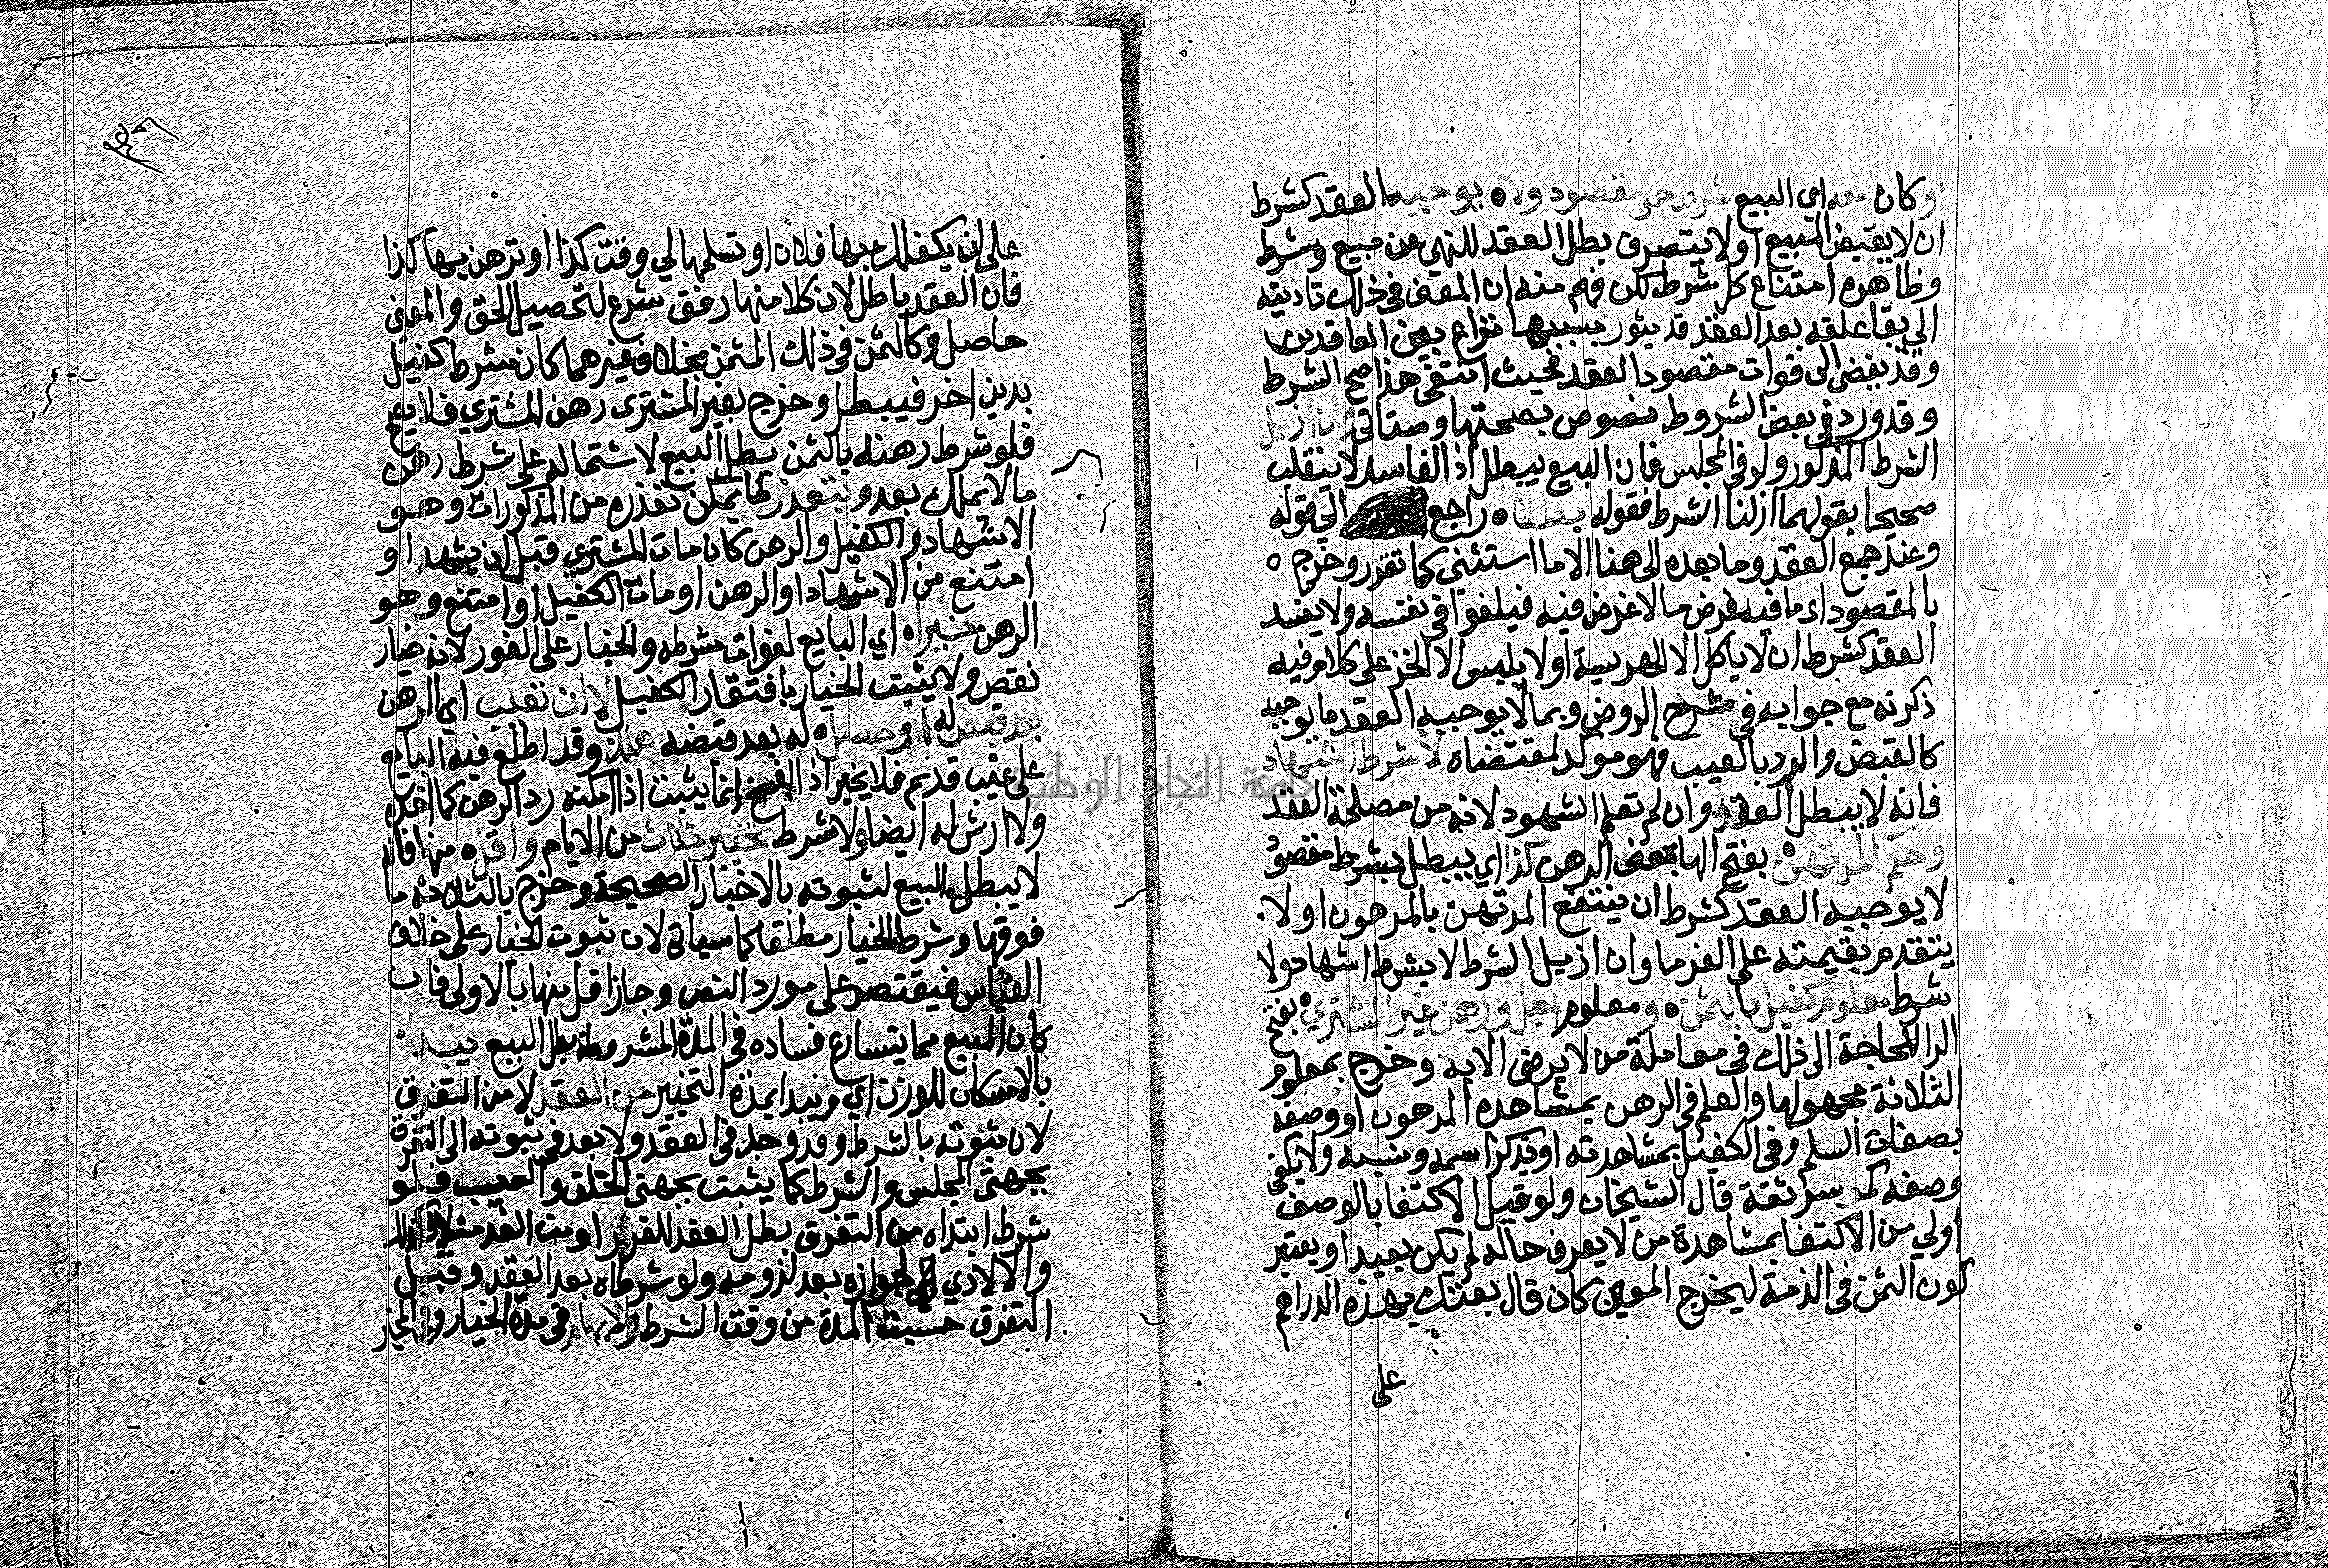 او كان معه اي البيع شرط هو مقصود ولا ٥ يوجبه العقد كشرط
ان لا يقبض المبيع او لا يتصرف بطل العقد للنهي عن بيع وشرط
وظاهره امتناع كل شرط لكن فهم منه ان المعنى في ذلك تاديته
الي بقا علقه بعد العقد قد يثور بسببها نزاع بين العاقدين
وقد يفضى الى فوات مقصود العقد فحيث انتفى هذا صح الشرط
وقد ورد في بعض الشروط نصوص بصحتها وستاتي وان ازيل
الشرط المذكور ولو في المجلس فان البيع يبطل اذ الفاسد لا ينقلب
صحيحا بقولهما ازلنا الشرط فقوله بطلا ٥ راجع الي قوله
وعند جميع العقد وما بعده الى هنا الا ما استثنى كما تقرر وخرج ٥
بالمقصود اي ما فيه غرض ما لا غرض فيه فيلغوا في نفسه ولا يفسد
العقد كشرط ان لا ياكل الا الهريسة او لا يلبس الا الخز على كلام فيه
ذكرته مع جوابه في شرح الروض وبما لا يوجبه العقد ما يوجبه
كالقبض والرد بالعيب فهو موكد لمقتضاه لا شرط اشهاد
فانه لا يبطل العقد وان لم تعلم الشهود لانه من مصلحة العقد
وحكم المرتهن ٥ بفتح الها بمعنى الرهن كذا اي يبطل بشرط مقصود
لا يوجبه العقد كشرط ان ينتفع المرتهن بالمرهون او لا
يتقدم بقيمته على الغرما وان ازيل الشرط لا بشرط اشهاد ولا
شرط معلوم كفيل بالثمن ٥ ومعلوم اجل ورهن غير المشتري ٥ بفتح
الرا للحاجة الى ذلك في معاملة من لا يرضى الا به وخرج بمعلوم
الثلاثة مجهولها والعلم في الرهن بمشاهدة المرهون او وصفه
بصفات السلم وفي الكفيل بمشاهدته او بذكر اسمه ونسبه ولا يكفي
وصفه كموسر ثقة قال الشيخان ولو قيل الاكتفا بالوصف
اولي من الاكتفا بمشاهدة من لا يعرف حاله لم يكن بعيدا ويعتبر
كون الثمن في الذمة ليخرج المعين كان قال بعتك بهذه الدراهم
على
على ان يكفلك بها فلان او تسلمها لي وقت كذا او ترهن بها كذا
فان العقد باطل لان كلا منها رفق شرع لتحصيل الحق والمعين
حاصل وكالثمن في ذلك المثمن بخلاف غيرهما كان شرط كفيل
بدين اخر فيبطل وخرج بغير المشترى رهن المشتري فلا يصح
فلو شرط رهنه بالثمن بطل البيع لاشتماله على شرط رهن
ما لا يملك بعد وبتعذر ما يمكن تعذره من المذكورات وهو
الاشهاد والكفيل والرهن كان مات المشتري قبل ان يشهد او
امتنع من الاشهاد او الرهن او مات الكفيل او امتنع وهو
الرهن خير ٥ اي البايع لفوات شرطه والخيار على الفور لانه خيار
نقص ولا يثبت الخيار بافتقار الكفيل لا ان تعيب اي الرهن
بعد قبض له او حصل له بعد قبضه هلك وقد اطلع فيه البايع
على عيب قديم فلا يخير اذ الفسخ انما يثبت اذا امكنه رد الرهن كما اخذه
ولا ارش له ايضا ولا شرط تخيير ثلاث من الايام واقل ٥ منها فانه
لا يبطل البيع لثبوته بالاخبار الصحيحة وخرج بالثلاثه ما
فوقها وشرط الخيار مطلقا كما سياتي لان ثبوت الخيار على خلاف
القياس فيقتصر على مورد النص وجاز اقل منها بالاولى فان
كان المبيع مما يتسارع فساده في المدة المشروطة بطل البيع
بالاسكان للوزن اي وتبدا بمدة التخيير من العقد لا من التفرق
لان ثبوته بالشرط وقد وجد في العقد ولا بعد في ثبوته الى التفرق
بجهتى المجلس والشرط كما يثبت بجهتى الخلف والعيب فلو
شرط ابتداه من التفرق بطل العقد للغرر
والا لادي الى جوازه بعد لزومه ولو شرطاه بعد العقد وقبل
التفرق حسبت المدة من وقت الشرط في مدة الخيار
جامعة النجاح الوطنية